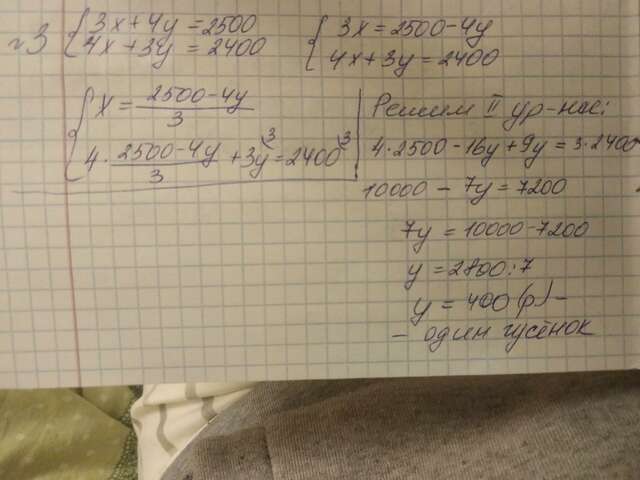 №3 { 3x + 4y = 2500
4x + 3y = 2400
{ 3x = 2500 - 4y
4x + 3y = 2400
{ x = (2500 - 4y)/3
4 · (2500 - 4y)/3 + 3y^3 = 2400^3
Решим II ур-ние:
4·2500 - 16y + 9y = 3·2400
10000 - 7y = 7200
7y = 10000 - 7200
y = 2800 : 7
y = 400 (р) -
- один гусёнок